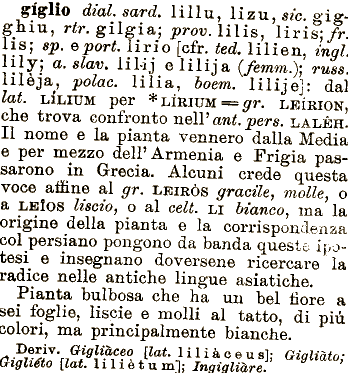 gíglio dial. sard. lillu, lizu, sic. gig-
ghiu, rtr. gilgia; prov. lilis, liris; fr.
lis; sp. e port. lirio [cfr. ted. lilien, ingl.
lily; a. slav. lil-ij e lilija (femm.); russ.
lilèja, polac. lilia, boem. lilije]: dal
lat. LÍLIUM per *LÍRIUM = gr. LEÍRION,
che trova confronto nell'ant. pers. LALÈH.
Il nome e la pianta vennero dalla Media
e per mezzo dell'Armenia e Frigia pas-
sarono in Grecia. Alcuni crede questa
voce affine al gr. LEIRÒS gracile, molle, o
a LEÍOS liscio, o al celt. LI bianco, ma la
origine della pianta e la corrispondenza
col persiano pongono da banda queste ipo-
tesi e insegnano doversene ricercare la
radice nelle antiche lingue asiatiche.
Pianta bulbosa che ha un bel fiore a
sei foglie, liscie e molli al tatto, di piú
colori, ma principalmente bianche.
Deriv. Gigliàceo [lat. liliàceus]; Gigliàto;
Gigliéto [lat. liliètum]; Ingigliàre.